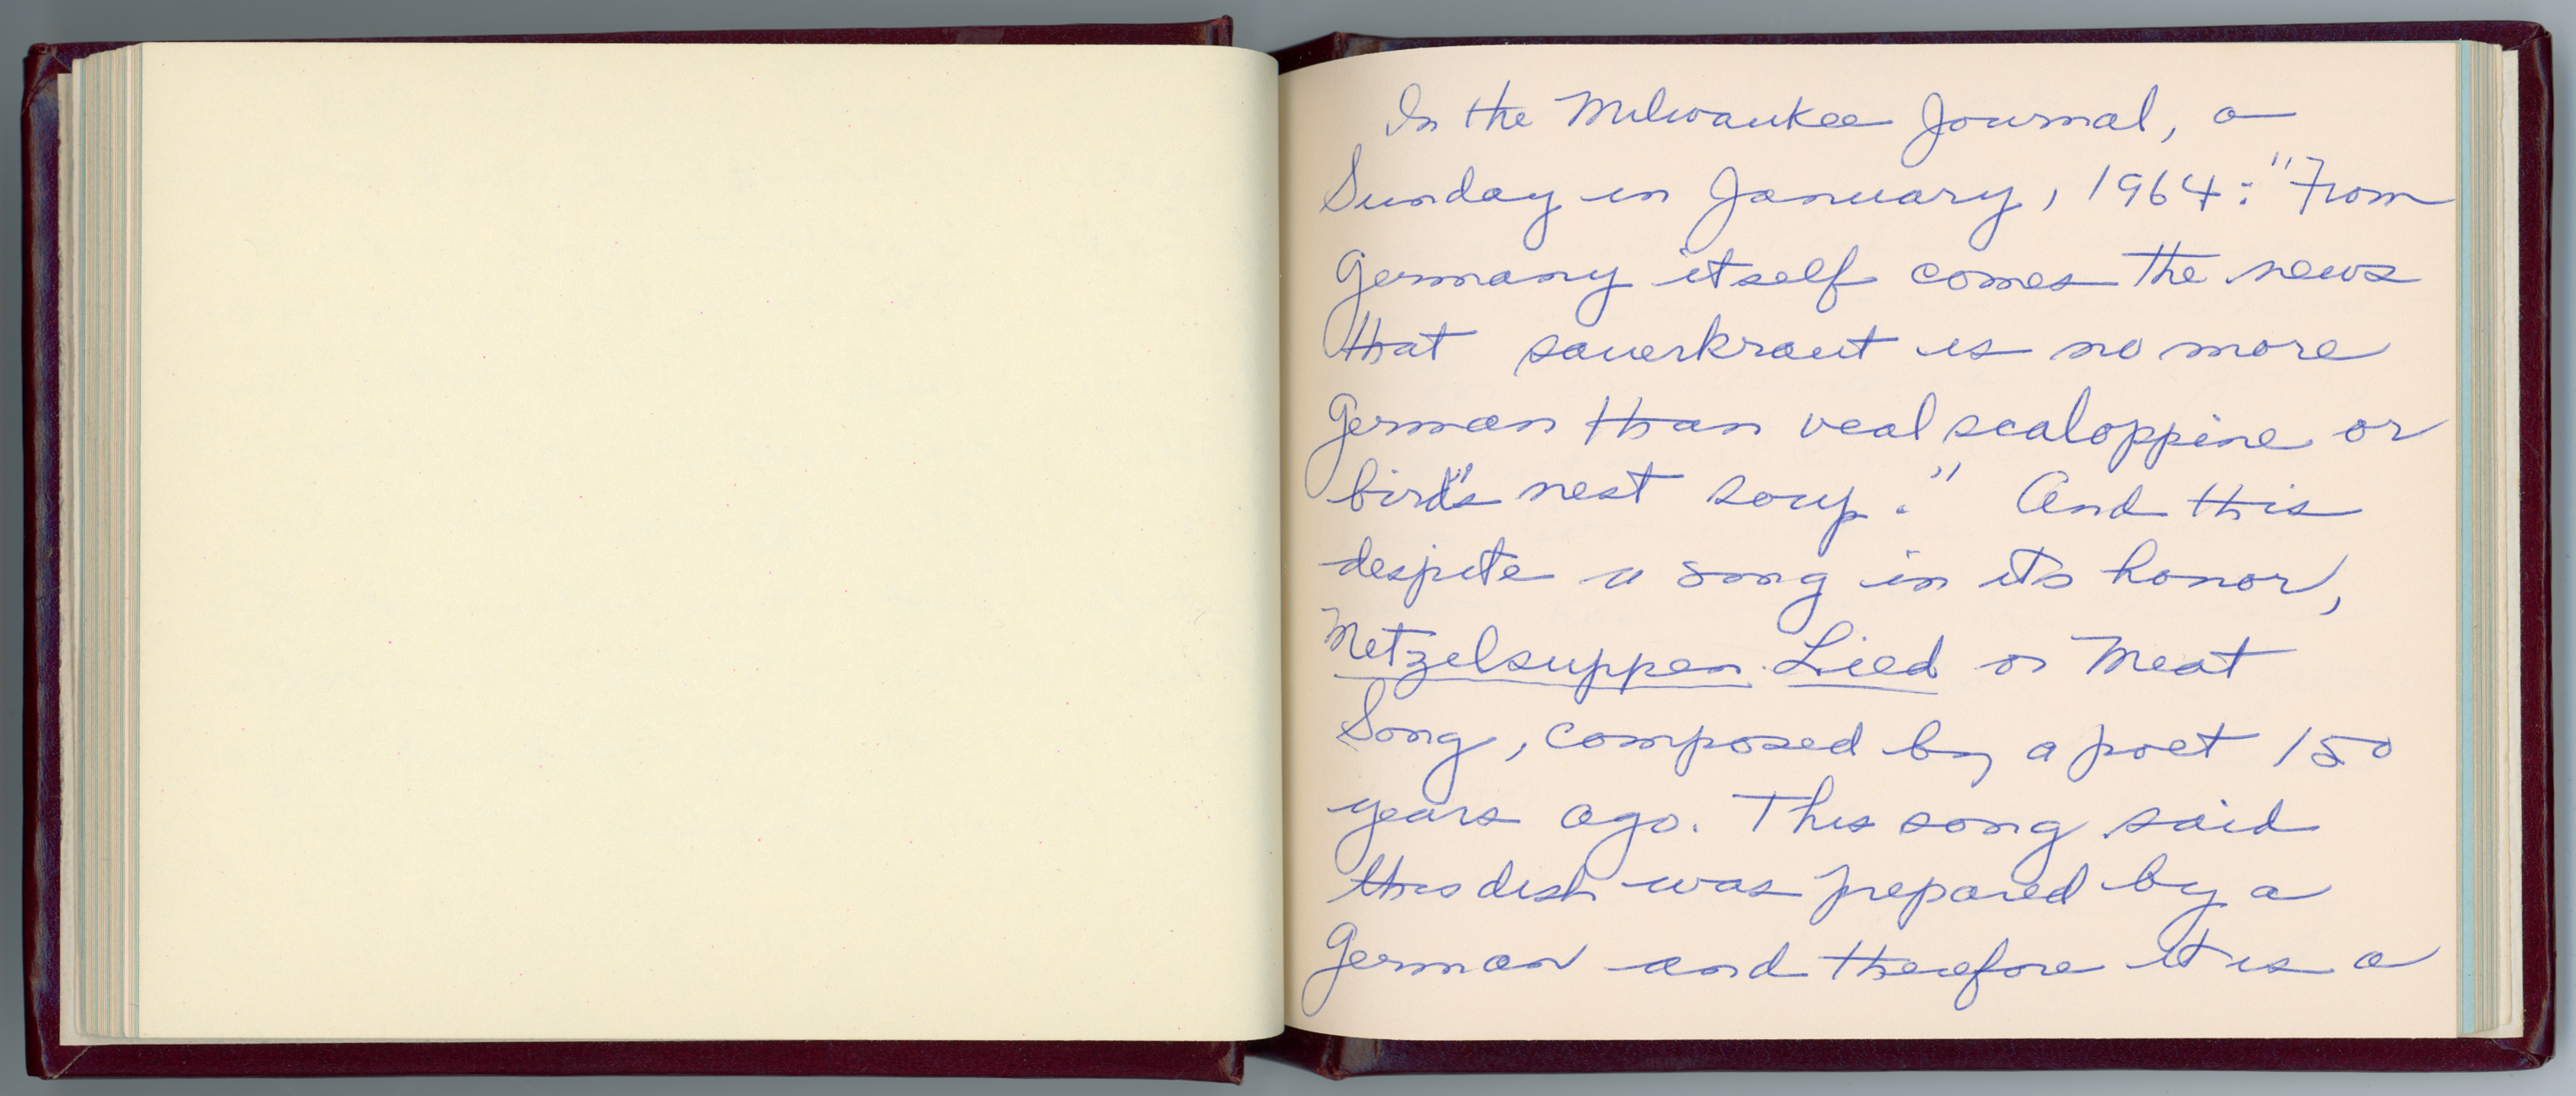 In the Milwaukee Journal, a
Sunday in January, 1964: "From
Germany itself comes the news
that sauerkraut is no more
German than veal scaloppine or
bird's nest soup." And this
despite a song in its honor,
Metzelsuppen Lied or Meat
Song, composed by a poet 150
years ago. This song said
this dish was prepared by a
German and therefore it is a